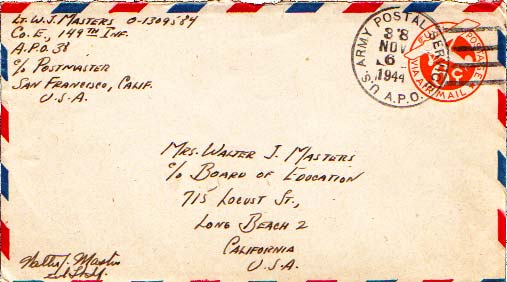 Lt. W. J. Masters O-1309584
Co. E., 149TH Inf.
A.P.O. 38
c/o Postmaster
San Francisco, Calif.
U.S.A.
U.S. ARMY POSTAL SERVICE
38
NOV
6
1944
A.P.O.
VIA AIR MAIL
POSTAGE
Mrs. Walter J. Masters
c/o Board of Education
715 Locust St.,
Long Beach 2
California
U.S.A.
Walter J. Masters